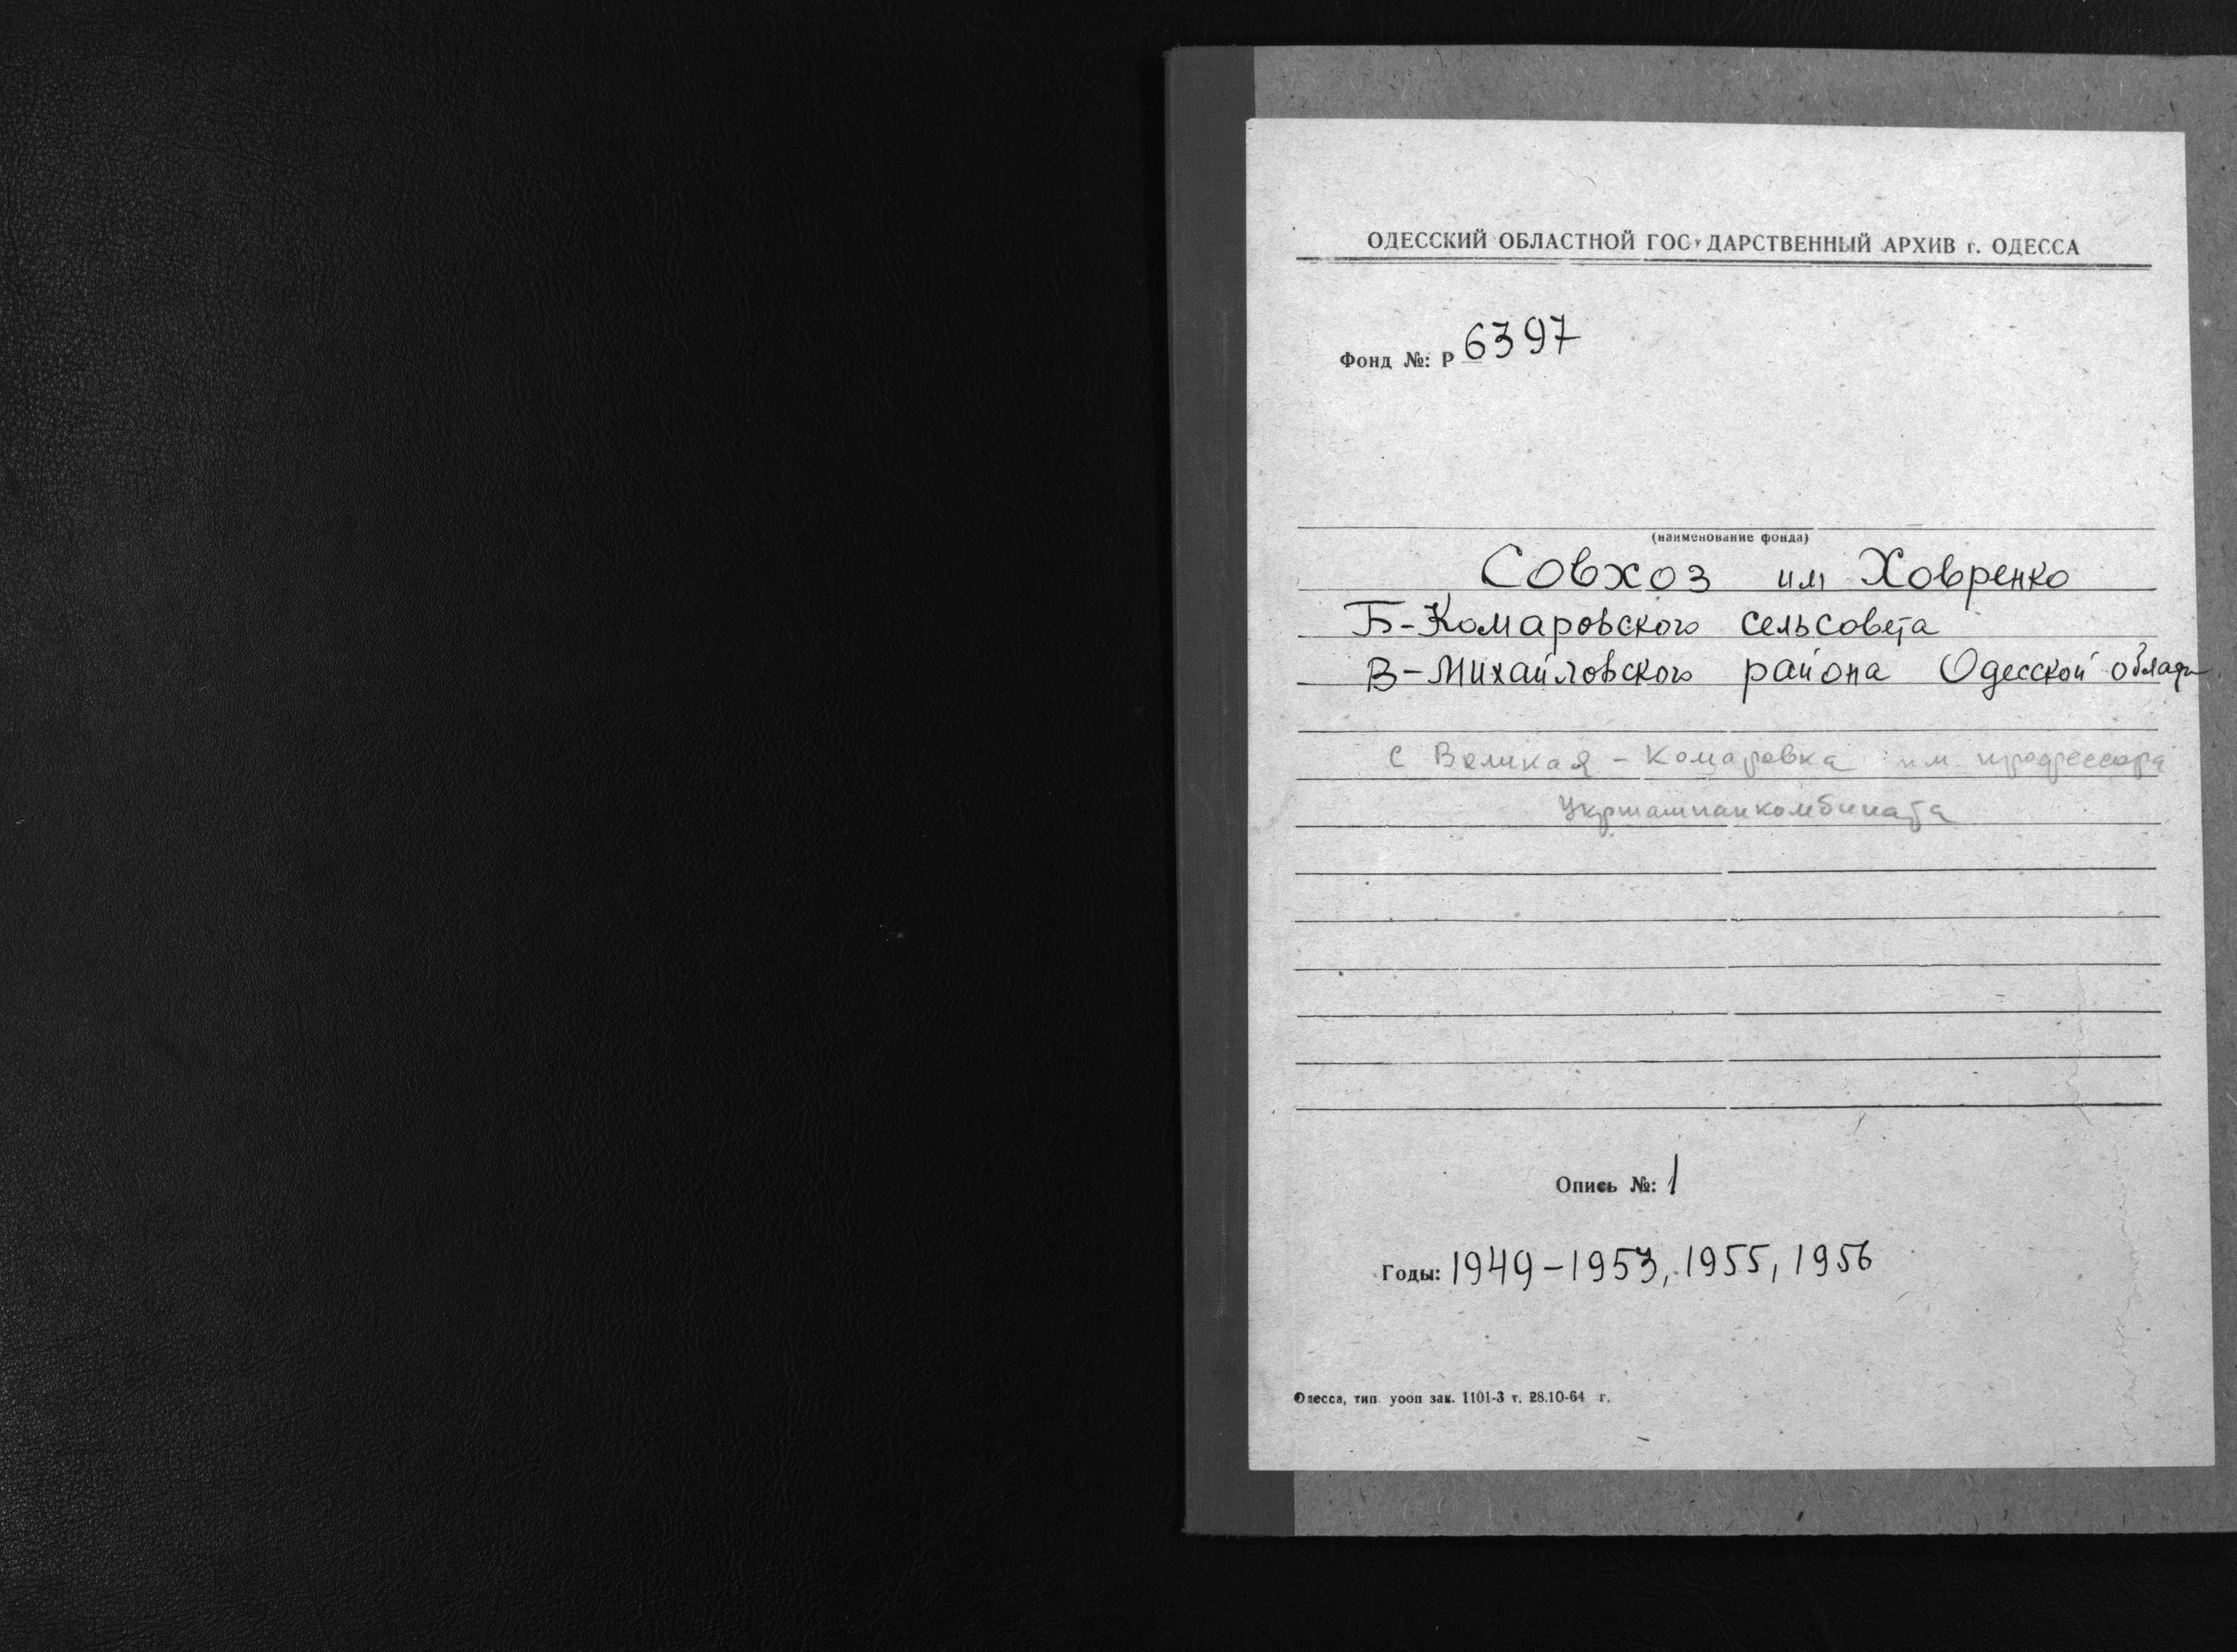 ОДЕССКИЙ ОБЛАСТНОЙ ГОСУДАРСТВЕННЫЙ АРХИВ г. ОДЕССА
Фонд №: Р 6397
(наименование фонда)
Совхоз им Ховренко
Б-Комаровского сельсовета
В-Михайловского района Одесской области
с Великая - Комаровка им профессора
Укршампанкомбината
Опись №: 1
Годы: 1949-1953, 1955, 1956
Одесса, тип. уооп зак. 1101-3 т. 28.10-64 г.